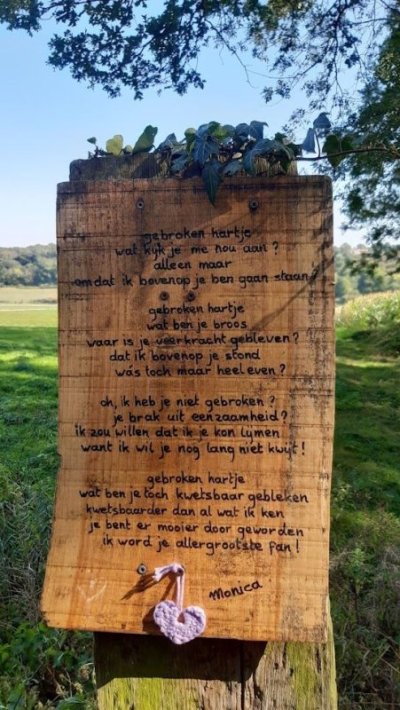 gebroken hartje
wat kijk je me nou aan?
alleen maar
omdat ik bovenop je ben gaan staan?
gebroken hartje
wat ben je broos
waar is je veerkracht gebleven?
dat ik bovenop je stond
was toch maar heel even?
oh, ik heb je niet gebroken?
je brak uit eenzaamheid?
ik zou willen dat ik je kon lijmen
want ik wil je nog lang niet kwijt!
gebroken hartje
wat ben je toch kwetsbaar gebleken
kwetsbaarder dan al wat ik ken
je bent er mooier door geworden
ik word je allergrootste fan!
Monica